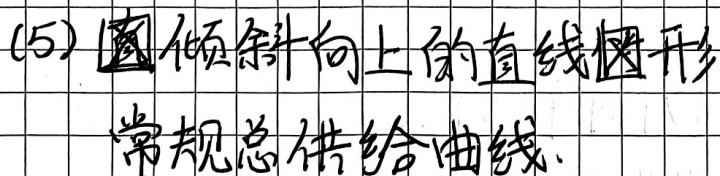 (5) 倾斜向上的直线图形
常规总供给曲线.